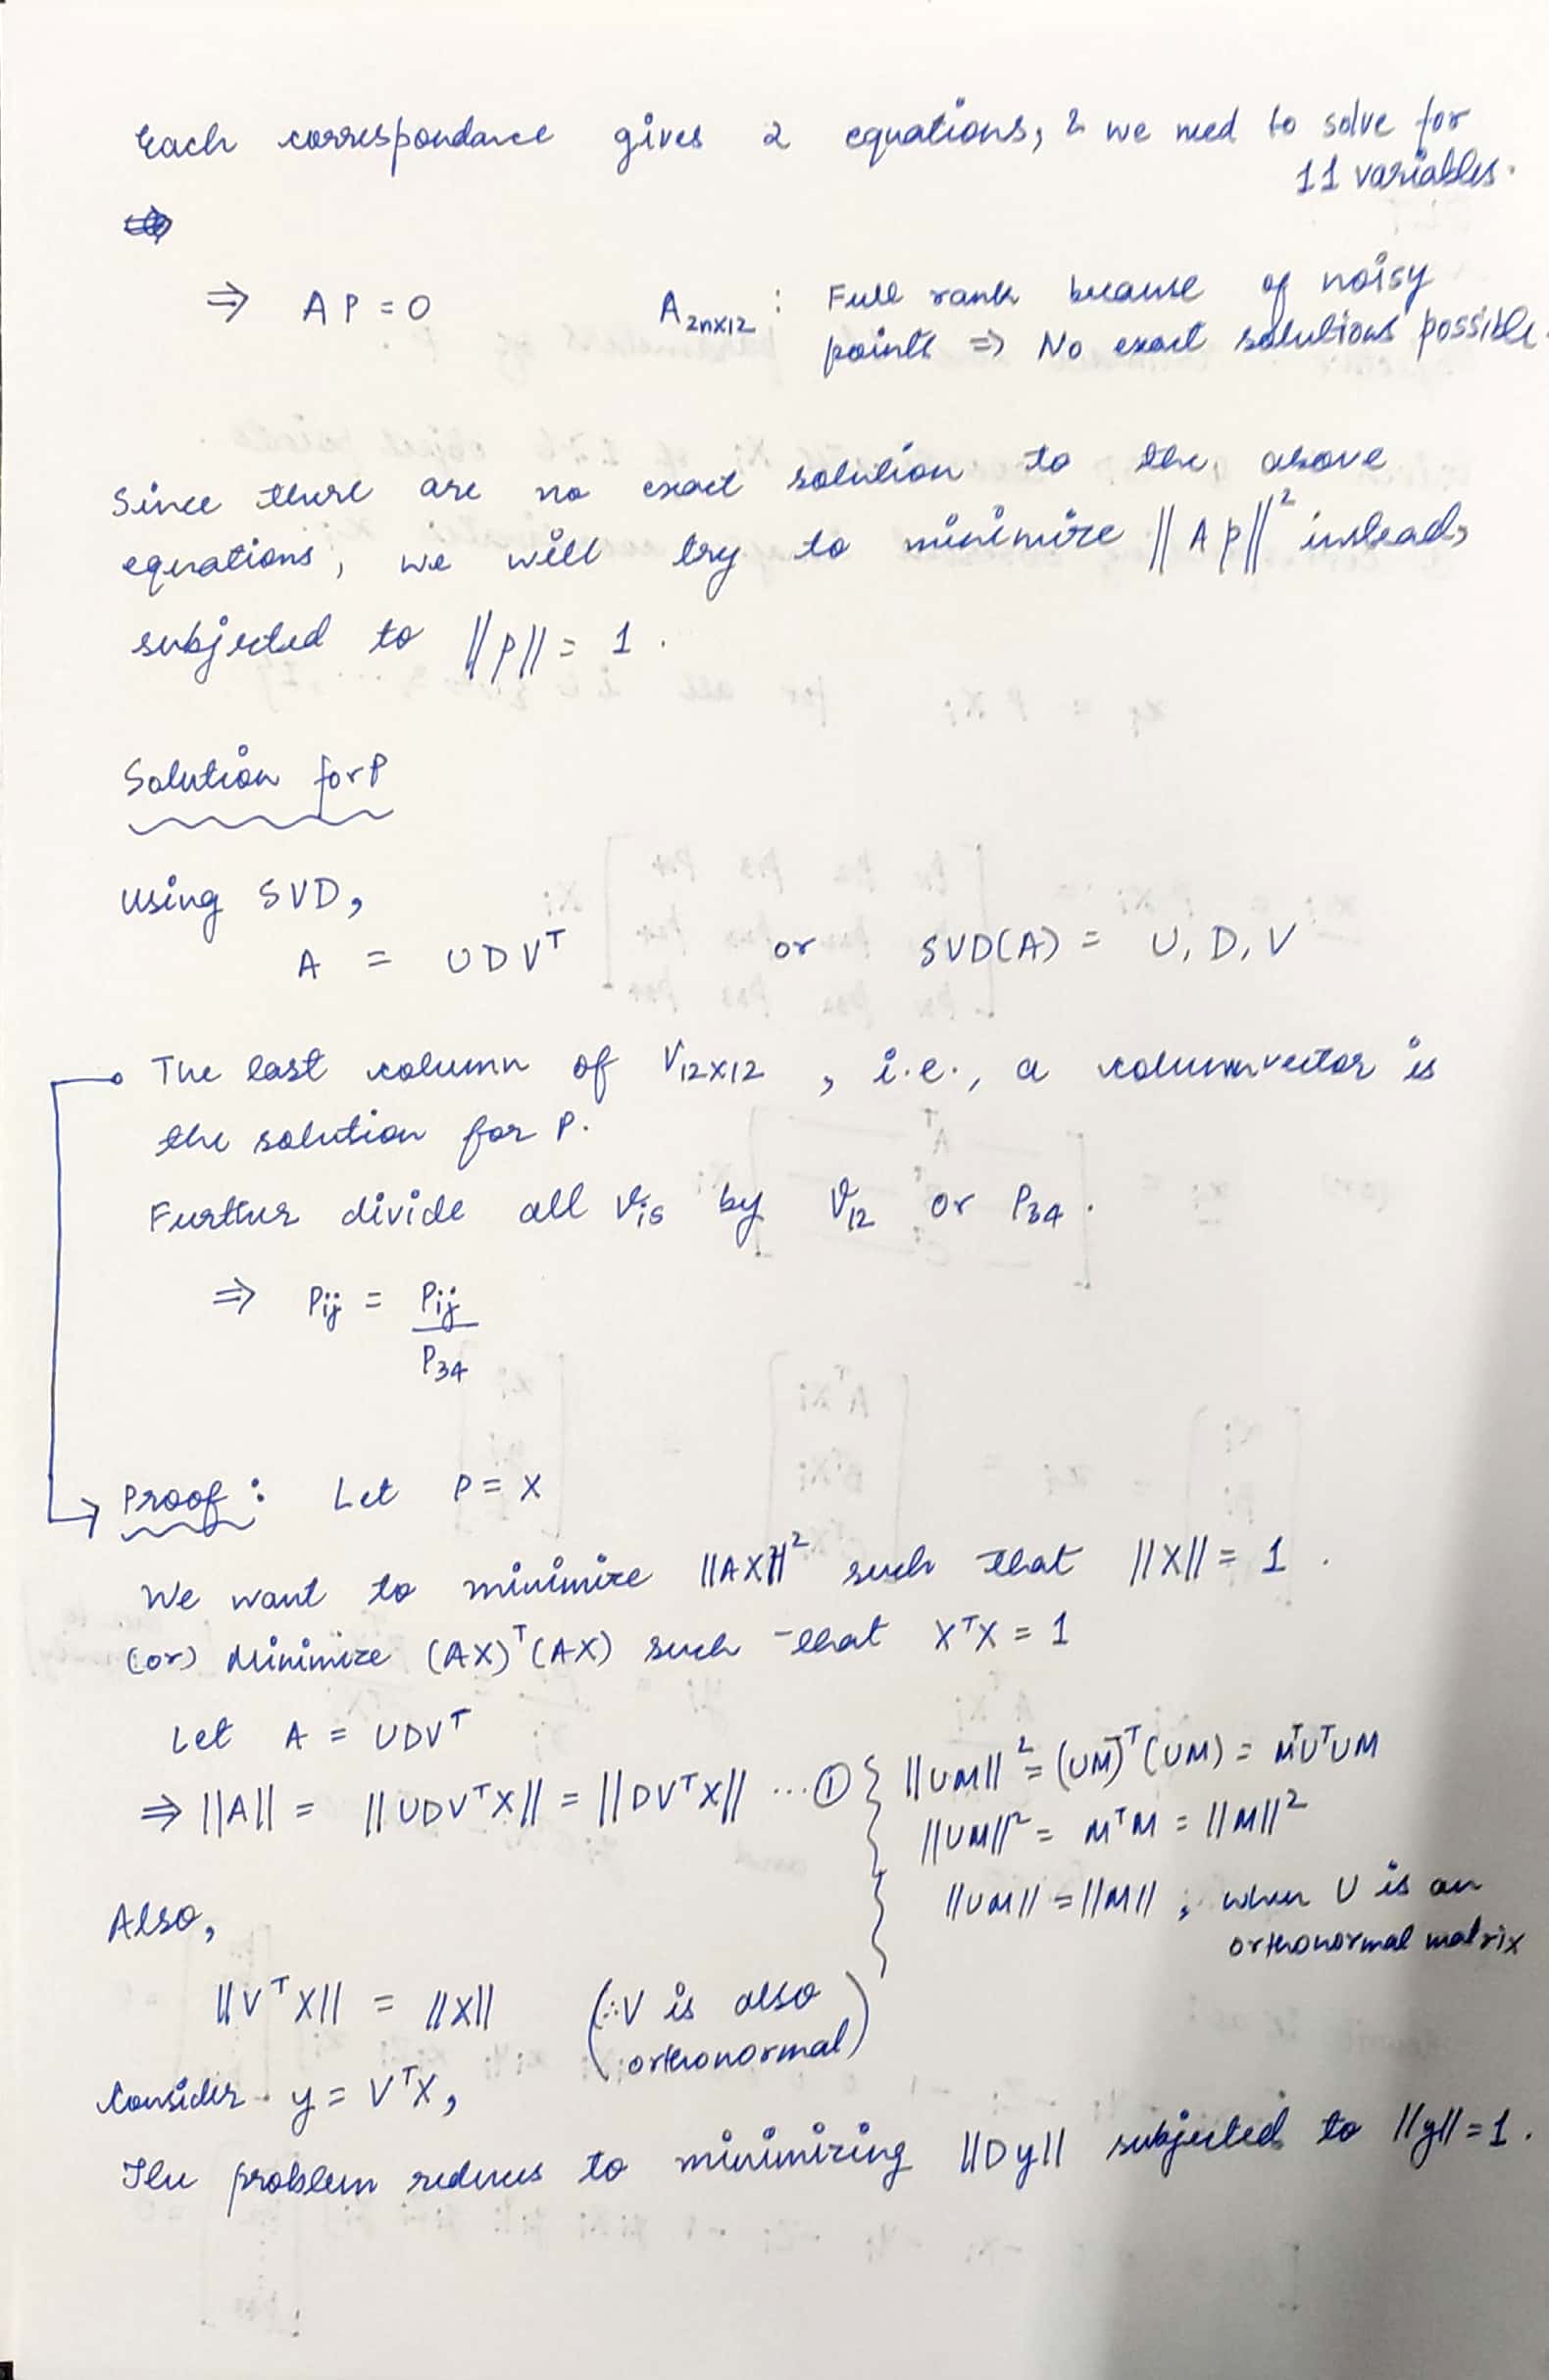 Each correspondance gives 2 equations, & we need to solve for
11 variables.
⇒ A P = 0 A2nx12 : Full rank because of noisy
points ⇒ No exact solutions possible.
Since there are no exact solution to the above
equations, we will try to minimize ||A p||² instead,
subjected to ||p|| = 1 .
Solution for P
using SVD,
A = U D Vᵀ or SVD(A) = U, D, V
The last column of V12x12 , i.e., a column vector is
the solution for P.
Further divide all vis by v12 or P34 .
⇒ Pij = Pij
P34
Proof : Let P = X
We want to minimize ||AX||² such that ||X|| = 1 .
(or) Minimize (AX)ᵀ(AX) such that XᵀX = 1
Let A = UDVᵀ
⇒ ||A|| = ||UDVᵀX|| = ||DVᵀX|| ... ①
||UM||² = (UM)ᵀ(UM) = MᵀUᵀUM
||UM||² = MᵀM = ||M||²
||UM|| = ||M|| , when U is an
orthonormal matrix
Also,
||VᵀX|| = ||X|| (∵ V is also
orthonormal)
Consider y = VᵀX,
The problem reduces to minimizing ||Dy|| subjected to ||y|| = 1 .